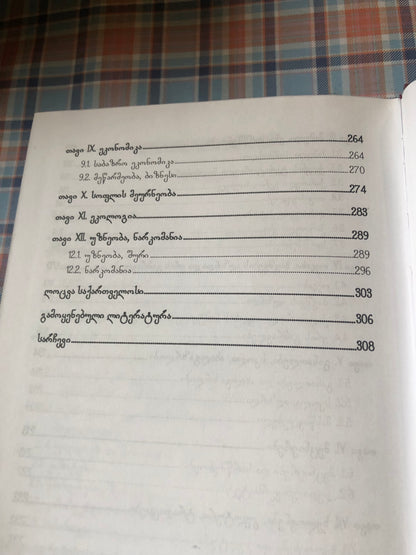 თავი IX. ეკონომიკა 264
9.1. საბაზრო ეკონომიკა 264
9.2. მეწარმეობა, ბიზნესი 270
თავი X. სოფლის მეურნეობა 274
თავი XI. ეკოლოგია 283
თავი XII. უზნეობა, ნარკომანია 289
12.1. უზნეობა, შური 289
12.2. ნარკომანია 296
ლოცვა საქართველოსი 303
გამოყენებული ლიტერატურა 306
სარჩევი 308